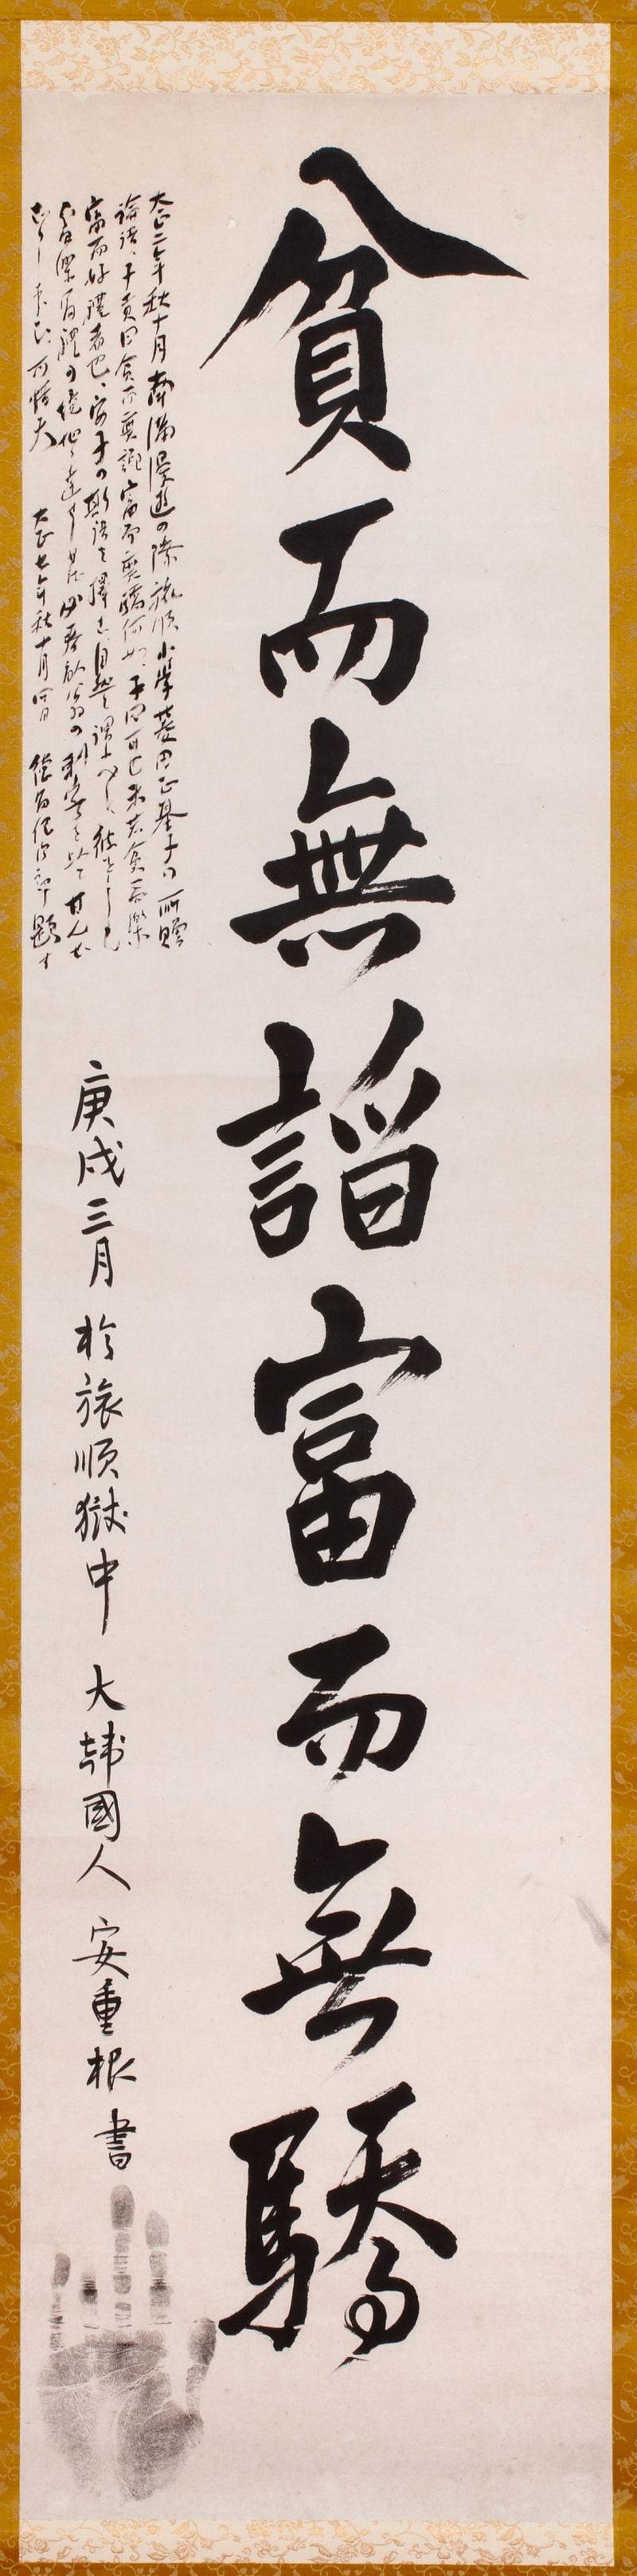 貧而無諂富而無驕
大正二年秋十月南滿漫遊の際旅順小學菱田正基子の所贈
論語、子貢曰貧而無諂富而無驕何如、子曰可也未若貧而樂
富而好禮者也、安子の斯語を擇
可惜矣 大正七年秋十月 題す
庚戌三月 於旅順獄中 大韓國人 安重根 書